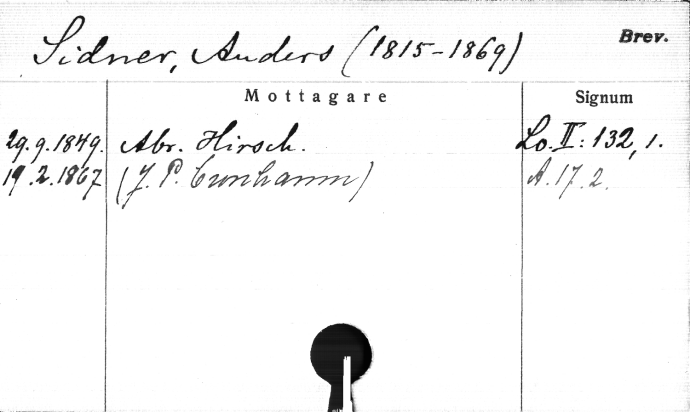 Sidner, Anders (1815-1869) Brev.
Mottagare Signum
29.9.1849. Abr. Hirsch. Lo. II: 132, 1.
19.2.1867 (J. P. Cronhamm) A. 17. 2.